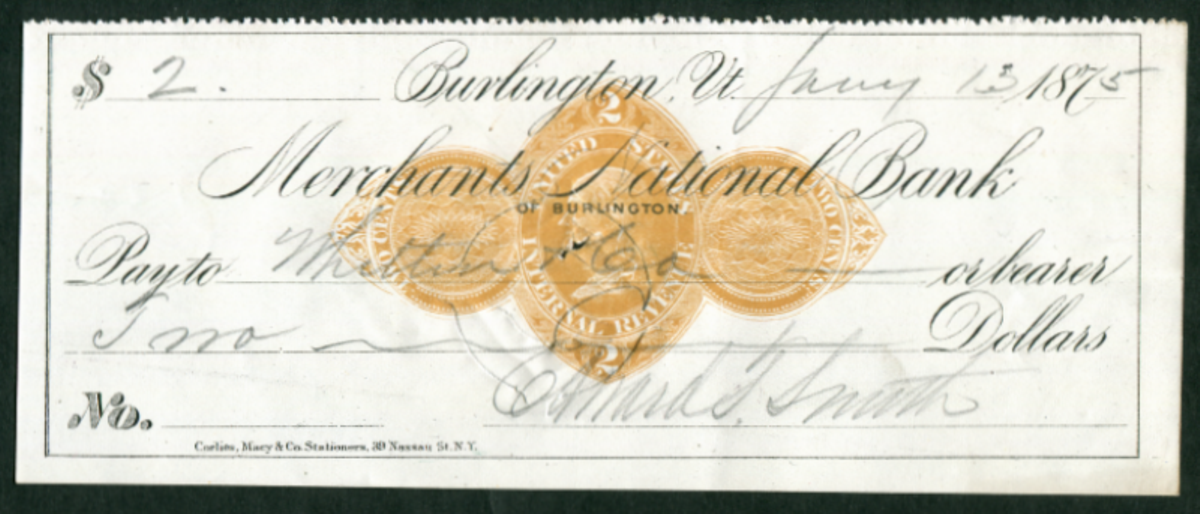 $ 2. Burlington, Vt. Jany 13, 1875
2
UNITED STATES
Merchants National Bank
OF BURLINGTON
TWO CENTS
INTERNAL REVENUE
Pay to & Co or bearer
Two Dollars
2
No. Smith
Corlies, Macy & Co. Stationers, 39 Nassau St. N.Y.